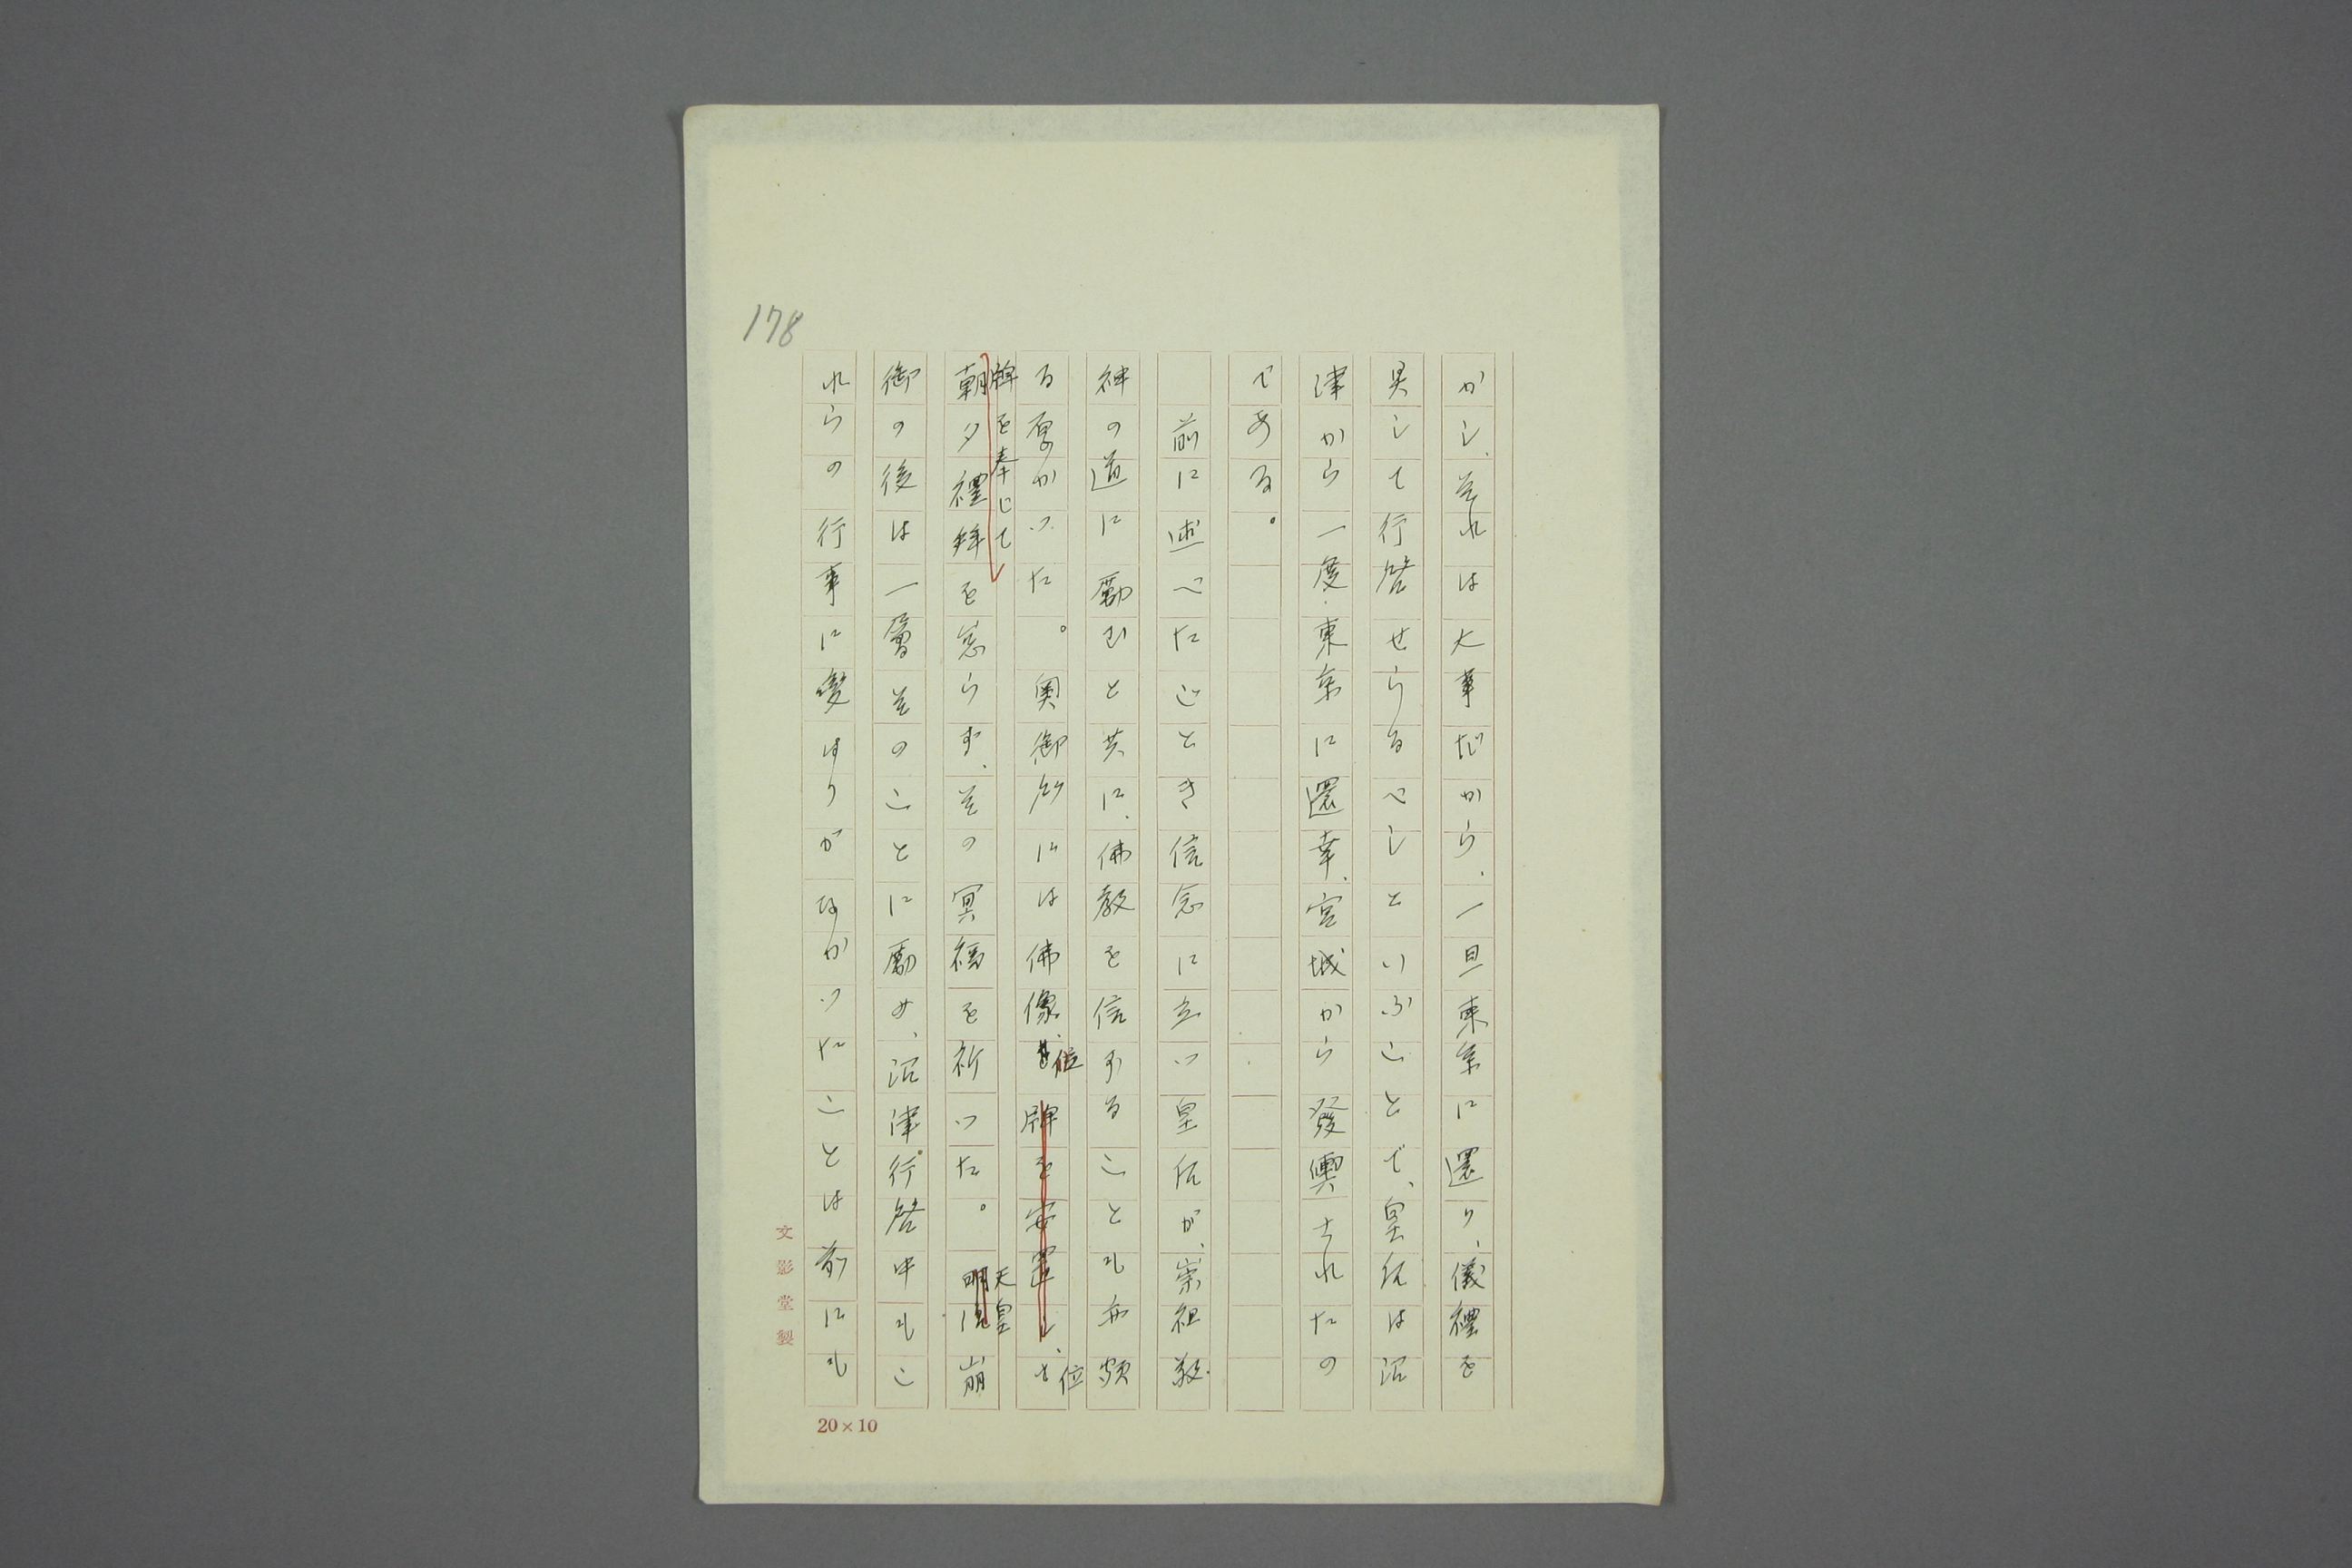 178
かし、それは大事だから、一旦東京に還り、儀禮を
具して行啓せらるべしといふことで、皇后は沼
津から一度東京に還幸、宮城から發輿されたの
である。
前に述べたごとき信念に立つ皇后が、崇祖敬
神の道に勵むと共に、佛教を信ずることも亦頗
る厚かつた。奥御所には佛像、位牌を安置し、位
牌を奉じて
朝夕禮拜を怠らず、その冥福を祈つた。天皇崩
御の後は一層そのことに勵め、沼津行啓中もこ
れらの行事に變はりがなかつたことは前にも
文影堂製
20×10